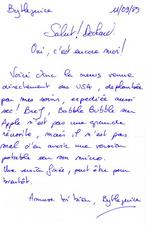 Bytlejuice 11/09/89
Salut! Deckard.
Oui, c'est encore moi!
Voici donc la menus venue
directement des USA, déplombée
par mes soins, expédiée aussi
sec! Bref, Bubble Bobble sur
Apple n'est pas une grande
réussite, mais il n'est pas
mal d'en avoir une version
potable sur son micro.
Une version fixée, peut être pour
bientôt.
Bytlejuice